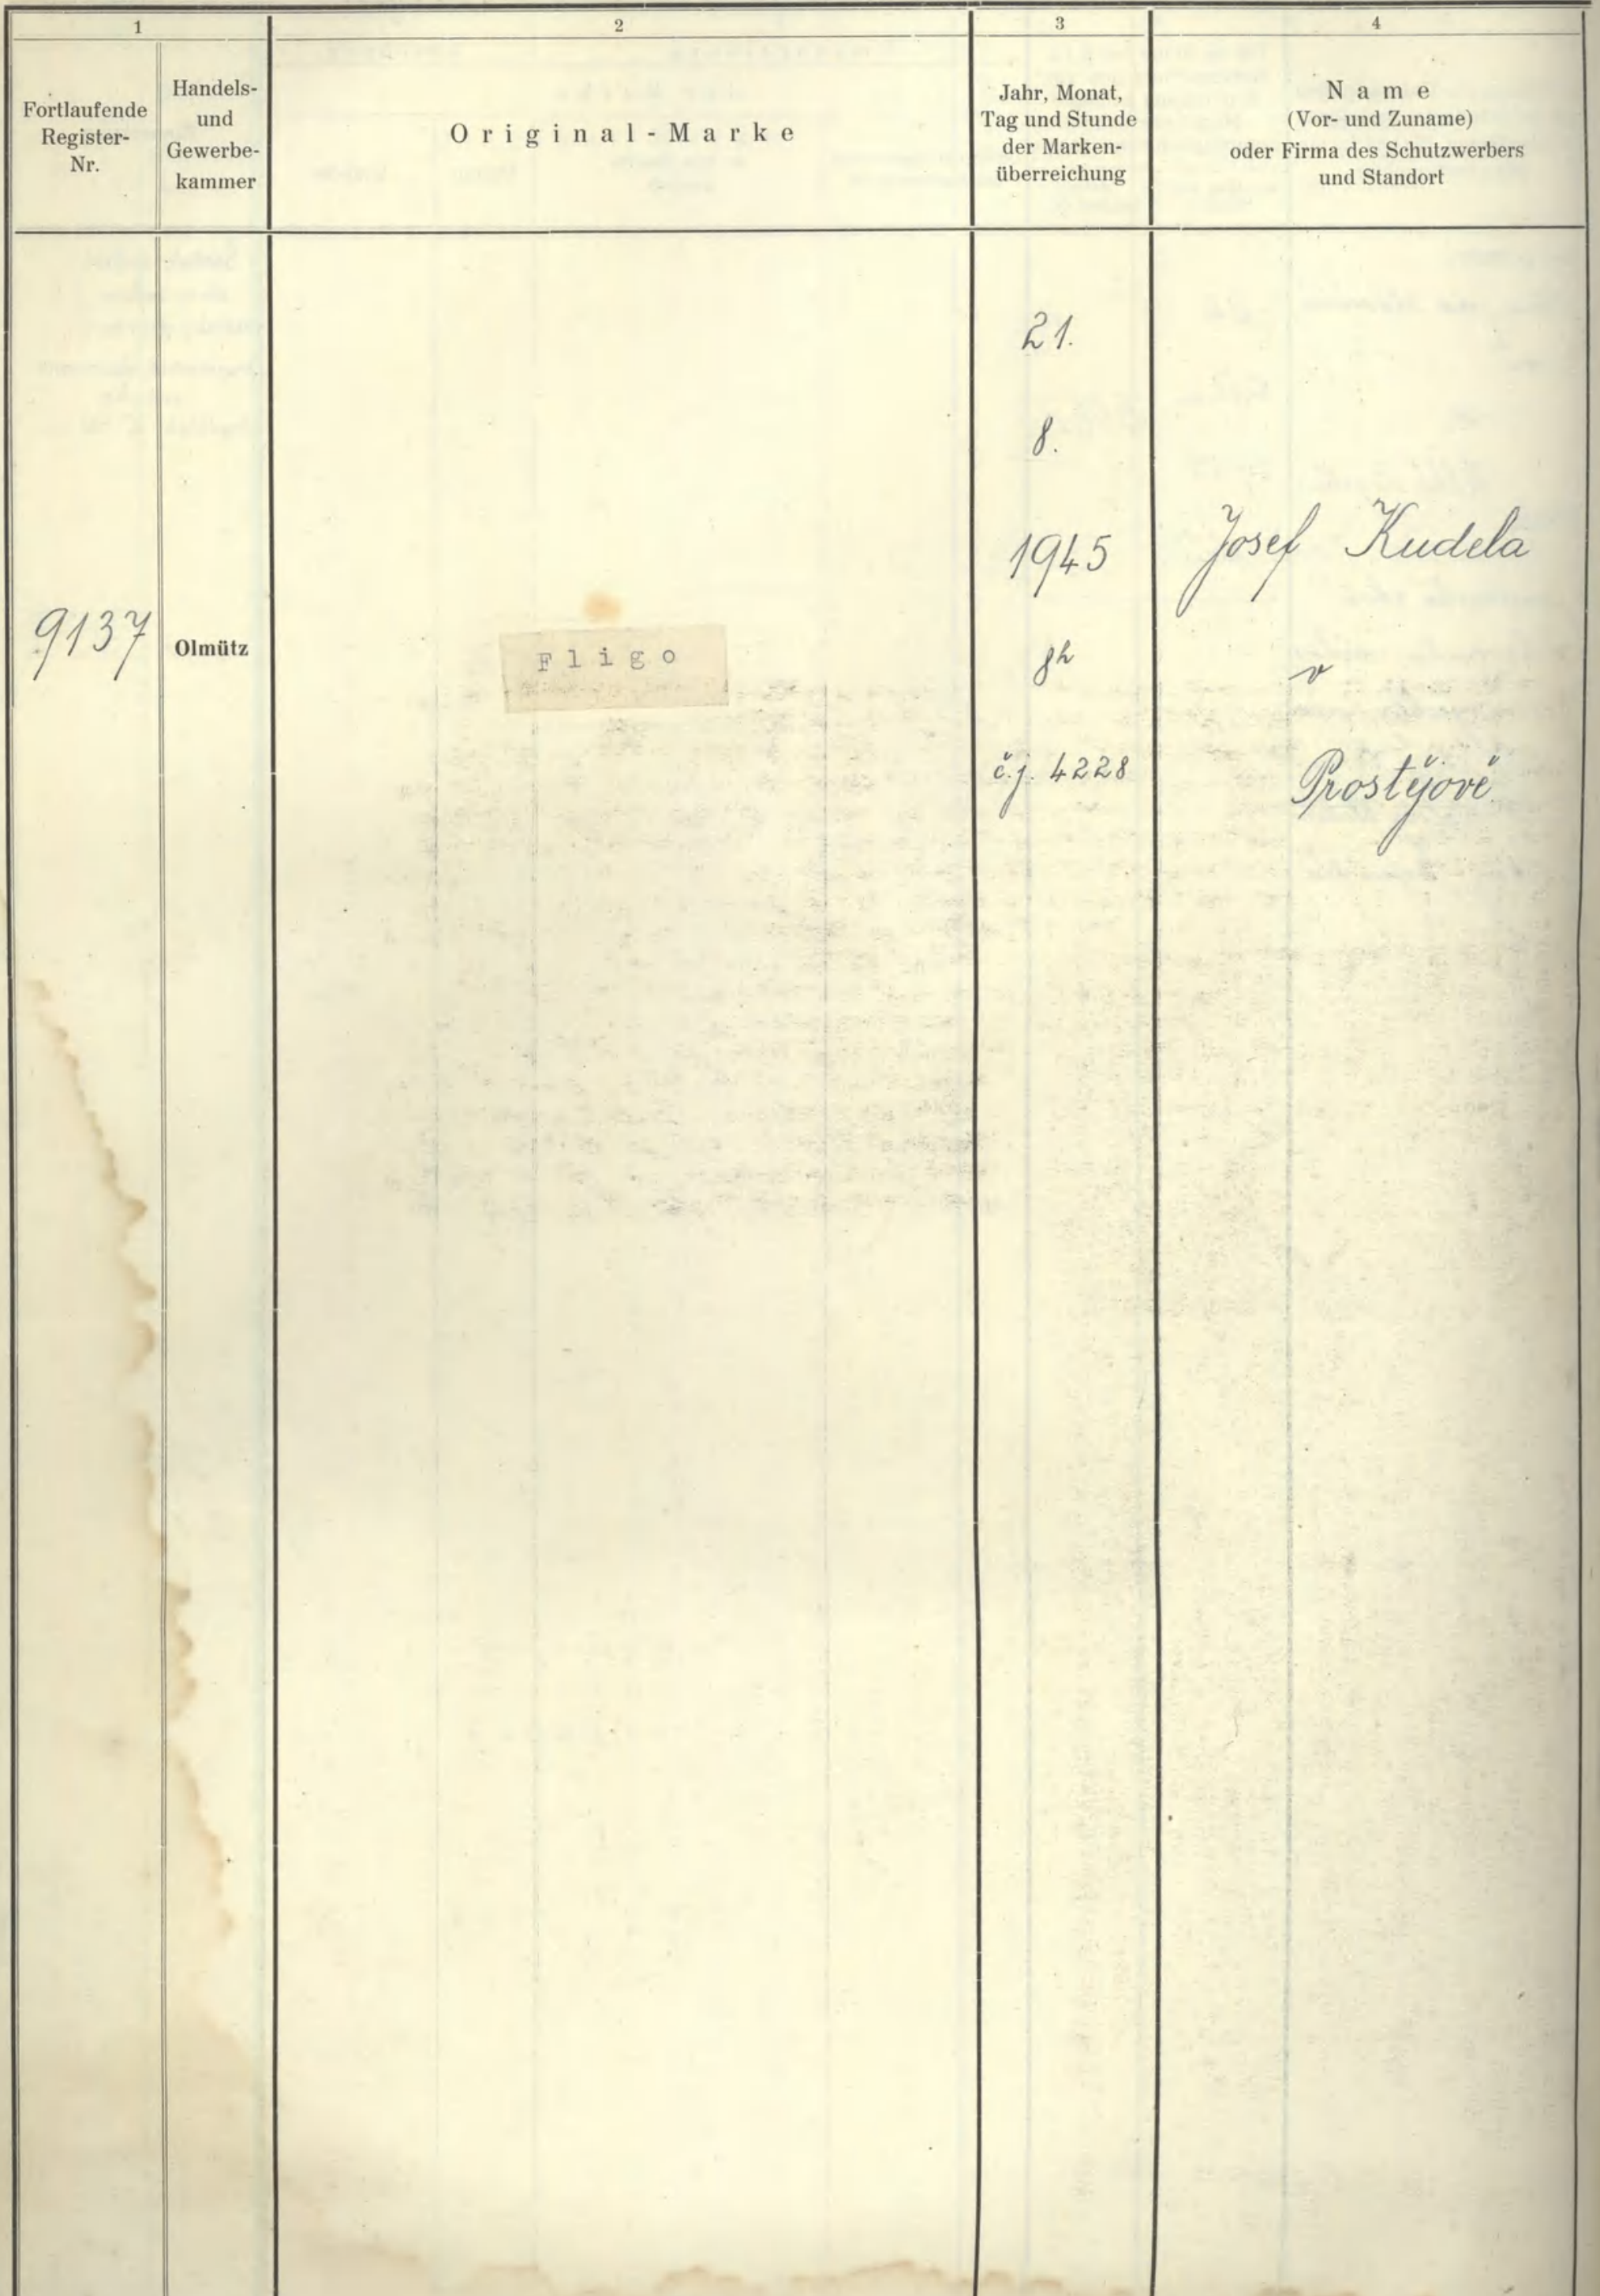 1
2
3
4
Fortlaufende
Register-
Nr.
Handels-
und
Gewerbe-
kammer
Original-Marke
Jahr, Monat,
Tag und Stunde
der Marken-
überreichung
Name
(Vor- und Zuname)
oder Firma des Schutzwerbers
und Standort
9137
Olmütz
Fligo
21.
8.
1945
8h
č.j. 4228
Josef Kudela
v
Prostějově